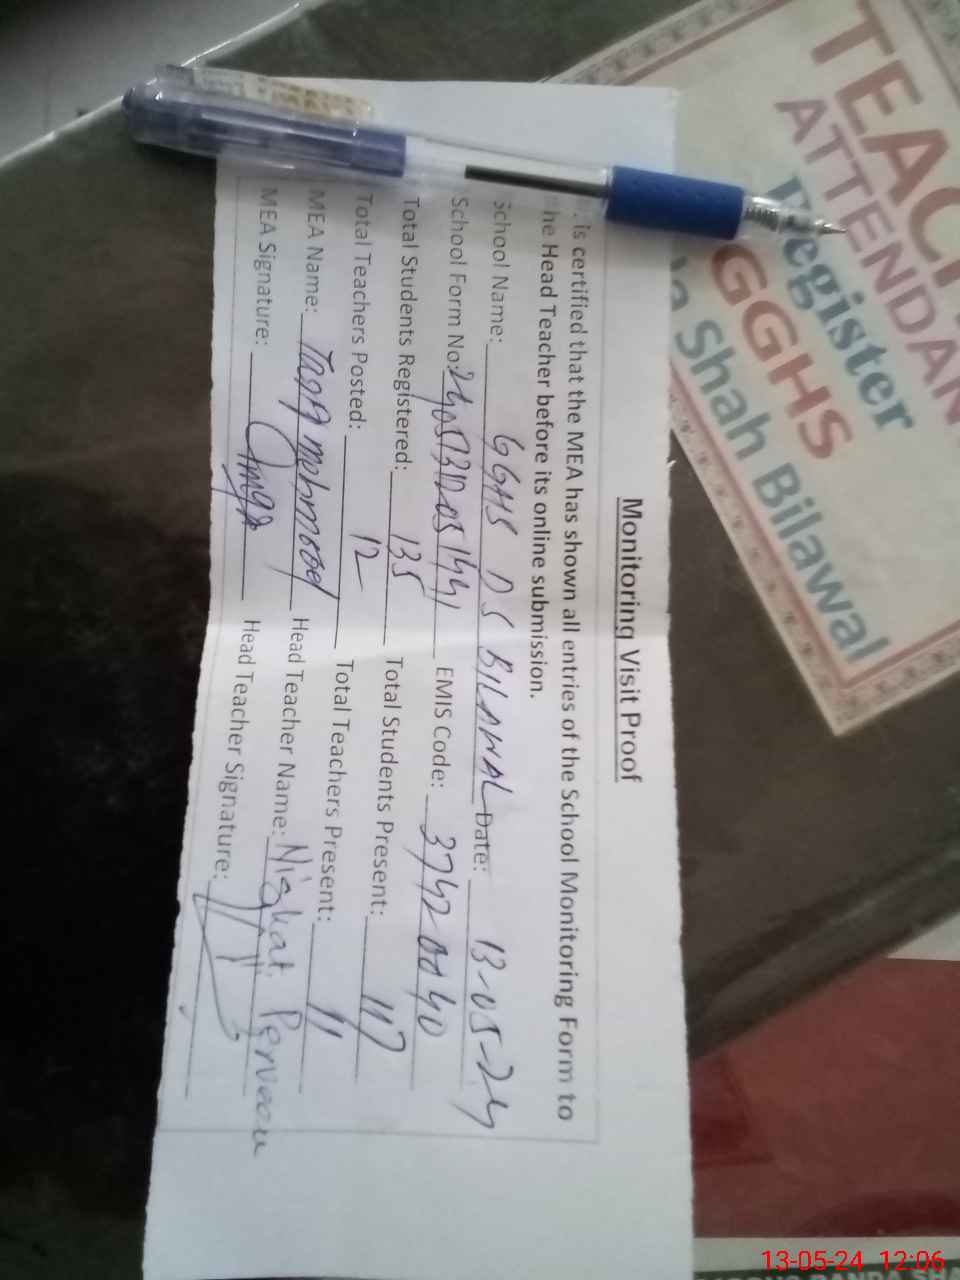 Monitoring Visit Proof
is certified that the MEA has shown all entries of the School Monitoring Form to
the Head Teacher before its online submission.
School Name: GGHS DS BILAWAL Date: 13-05-24
School Form No: EMIS Code: 37420040
Total Students Registered: 135 Total Students Present: 117
Total Teachers Posted: 12 Total Teachers Present: 11
MEA Name: mehmood Head Teacher Name: Nighat Perveen
MEA Signature: Head Teacher Signature:
TEAC
ATTENDAN
Register
GGHS
Shah Bilawal
13-05-24 12:06